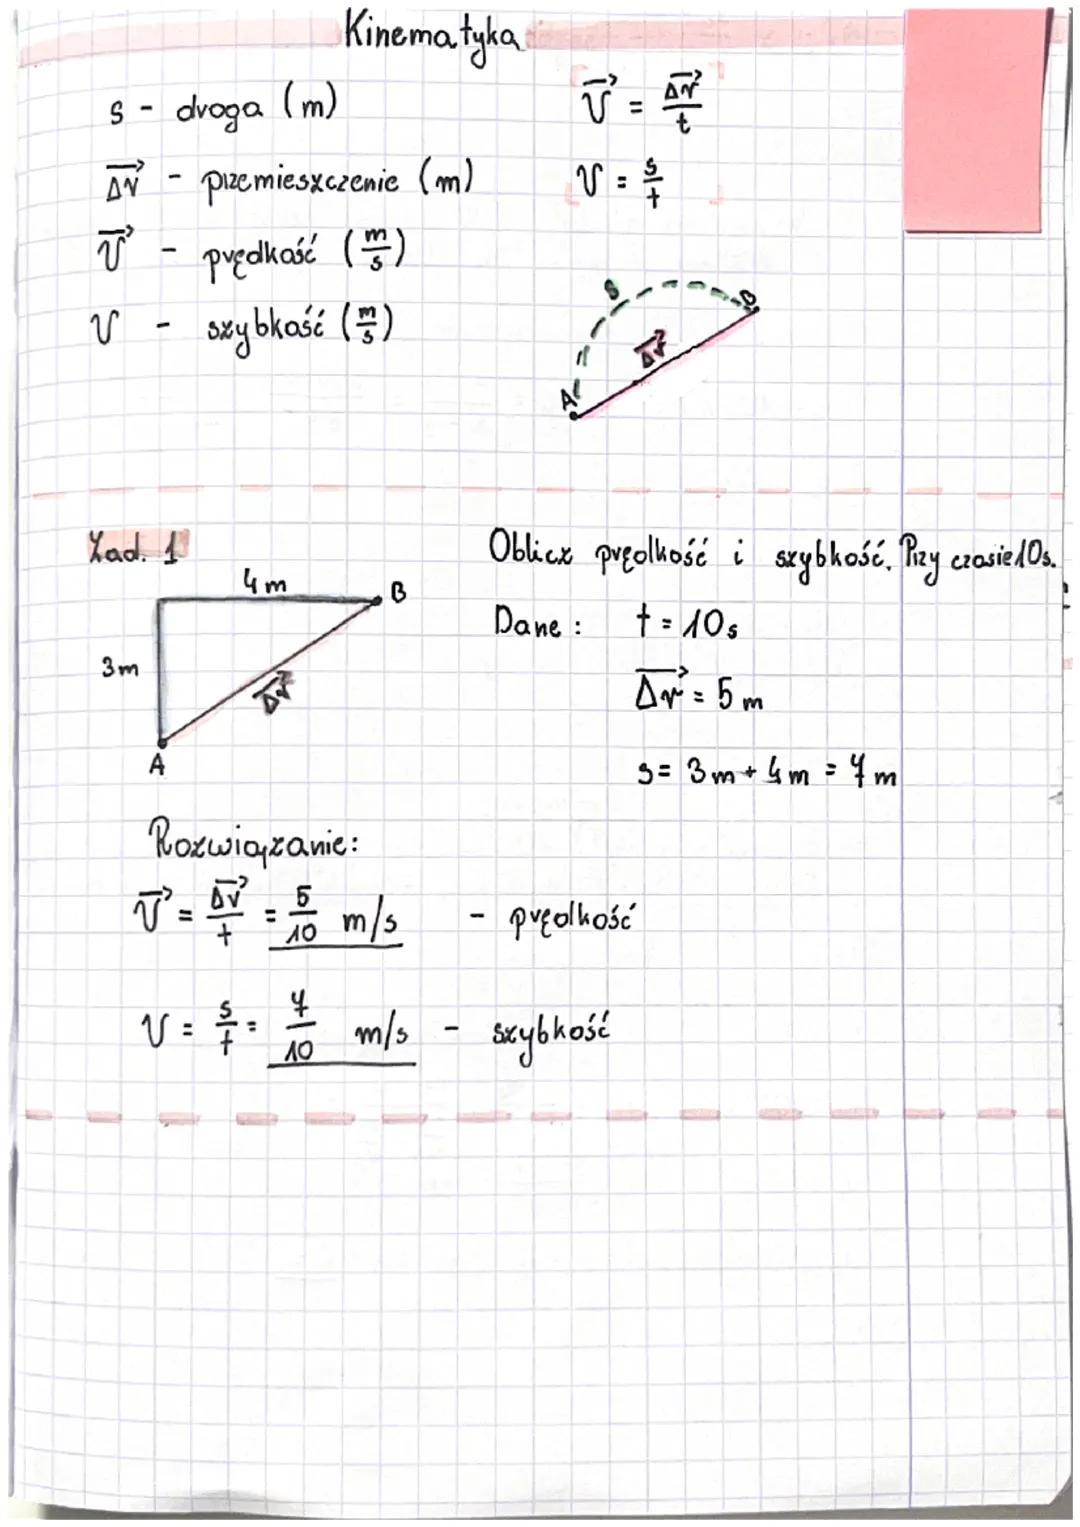 Kinematyka
s - droga (m)
v⃗ = Δr⃗/t
Δr⃗ - przemieszczenie (m)
v = s/t
v⃗ - prędkość (m/s)
v - szybkość (m/s)
s
B
Δr⃗
A
Zad. 1
Oblicz prędkość i szybkość. Przy czasie 10s.
4 m
B
Dane: t = 10s
3m
Δr⃗
Δr⃗ = 5 m
A
s = 3m + 4m = 7m
Rozwiązanie:
v⃗ = Δr⃗/t = 5/10 m/s - prędkość
v = s/t = 7/10 m/s - szybkość